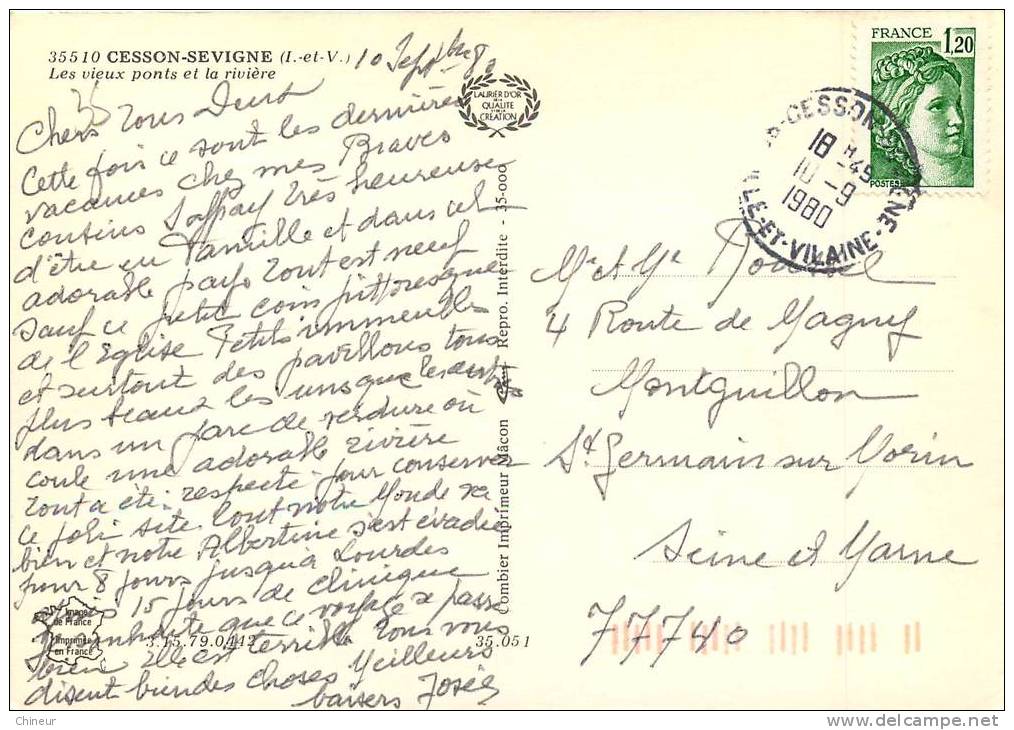 35510 CESSON-SEVIGNE (I.-et-V.)
Les vieux ponts et la rivière
10 Septbre 80
Chers Tous Deux
Cette fois ce sont les dernières
vacances chez mes Braves
cousins très heureuse
d'être en Famille et dans cet
adorable pays Tout est neuf
sauf ce petit coin pittoresque
de l'Eglise Petits immeubles
et surtout des pavillons tous
plus beaux les uns que les autres
dans un parc de verdure où
coule une adorable rivière
Tout a été respecté pour conserver
ce joli site Tout notre Monde va
bien et notre Albertine s'est évadée
pour 8 jours jusqu'à Lourdes
15 jours de clinique
que ce voyage se passe
bien Elle est terrible Tous vous
disent bien des choses Meilleurs
baisers Josée
LAURIER D'OR
DE LA
QUALITE
ET DE LA
CREATION
Combier Imprimeur Mâcon Repro. Interdite - 35-000
FRANCE 1,20
POSTES
CESSON
18 H 45
10-9
1980
ILLE-ET-VILAINE
Mr et Me
4 Route de Magny
Montguillon
St Germain sur Morin
Seine et Marne
77740
Image
de France
Imprimé
en France
3.15.79.0442
35.051
Chineur
www.delcampe.net